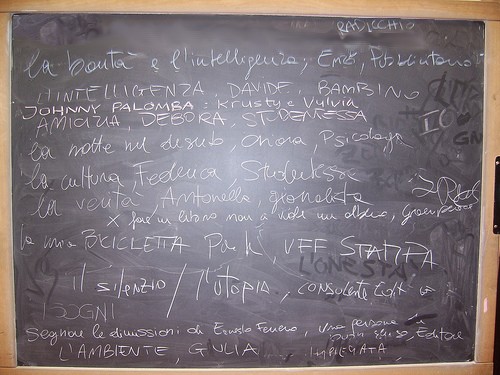 RADICCHIO
la bontà e l'intelligenza, Enzo, Pubblicitario
L'INTELLIGENZA, DAVIDE, BAMBINO
JOHNNY PALOMBA: Krusty e Vulvia
AMICIZIA, DEBORA STUDENTESSA
la notte nel deserto, Chiara, Psicologa
la cultura, Federica, Studentessa
la verità, Antonella, giornalista
x fare un libro non si uccide un albero,
la mia BICICLETTA Paola, UFF STAMPA
L'ONESTÀ
il silenzio / l'UTOPIA, CONSULENTE
I SOGNI
Segnare le dimissioni di Ernesto Ferrero, una persona Editore
L'AMBIENTE, GIULIA IMPIEGATA